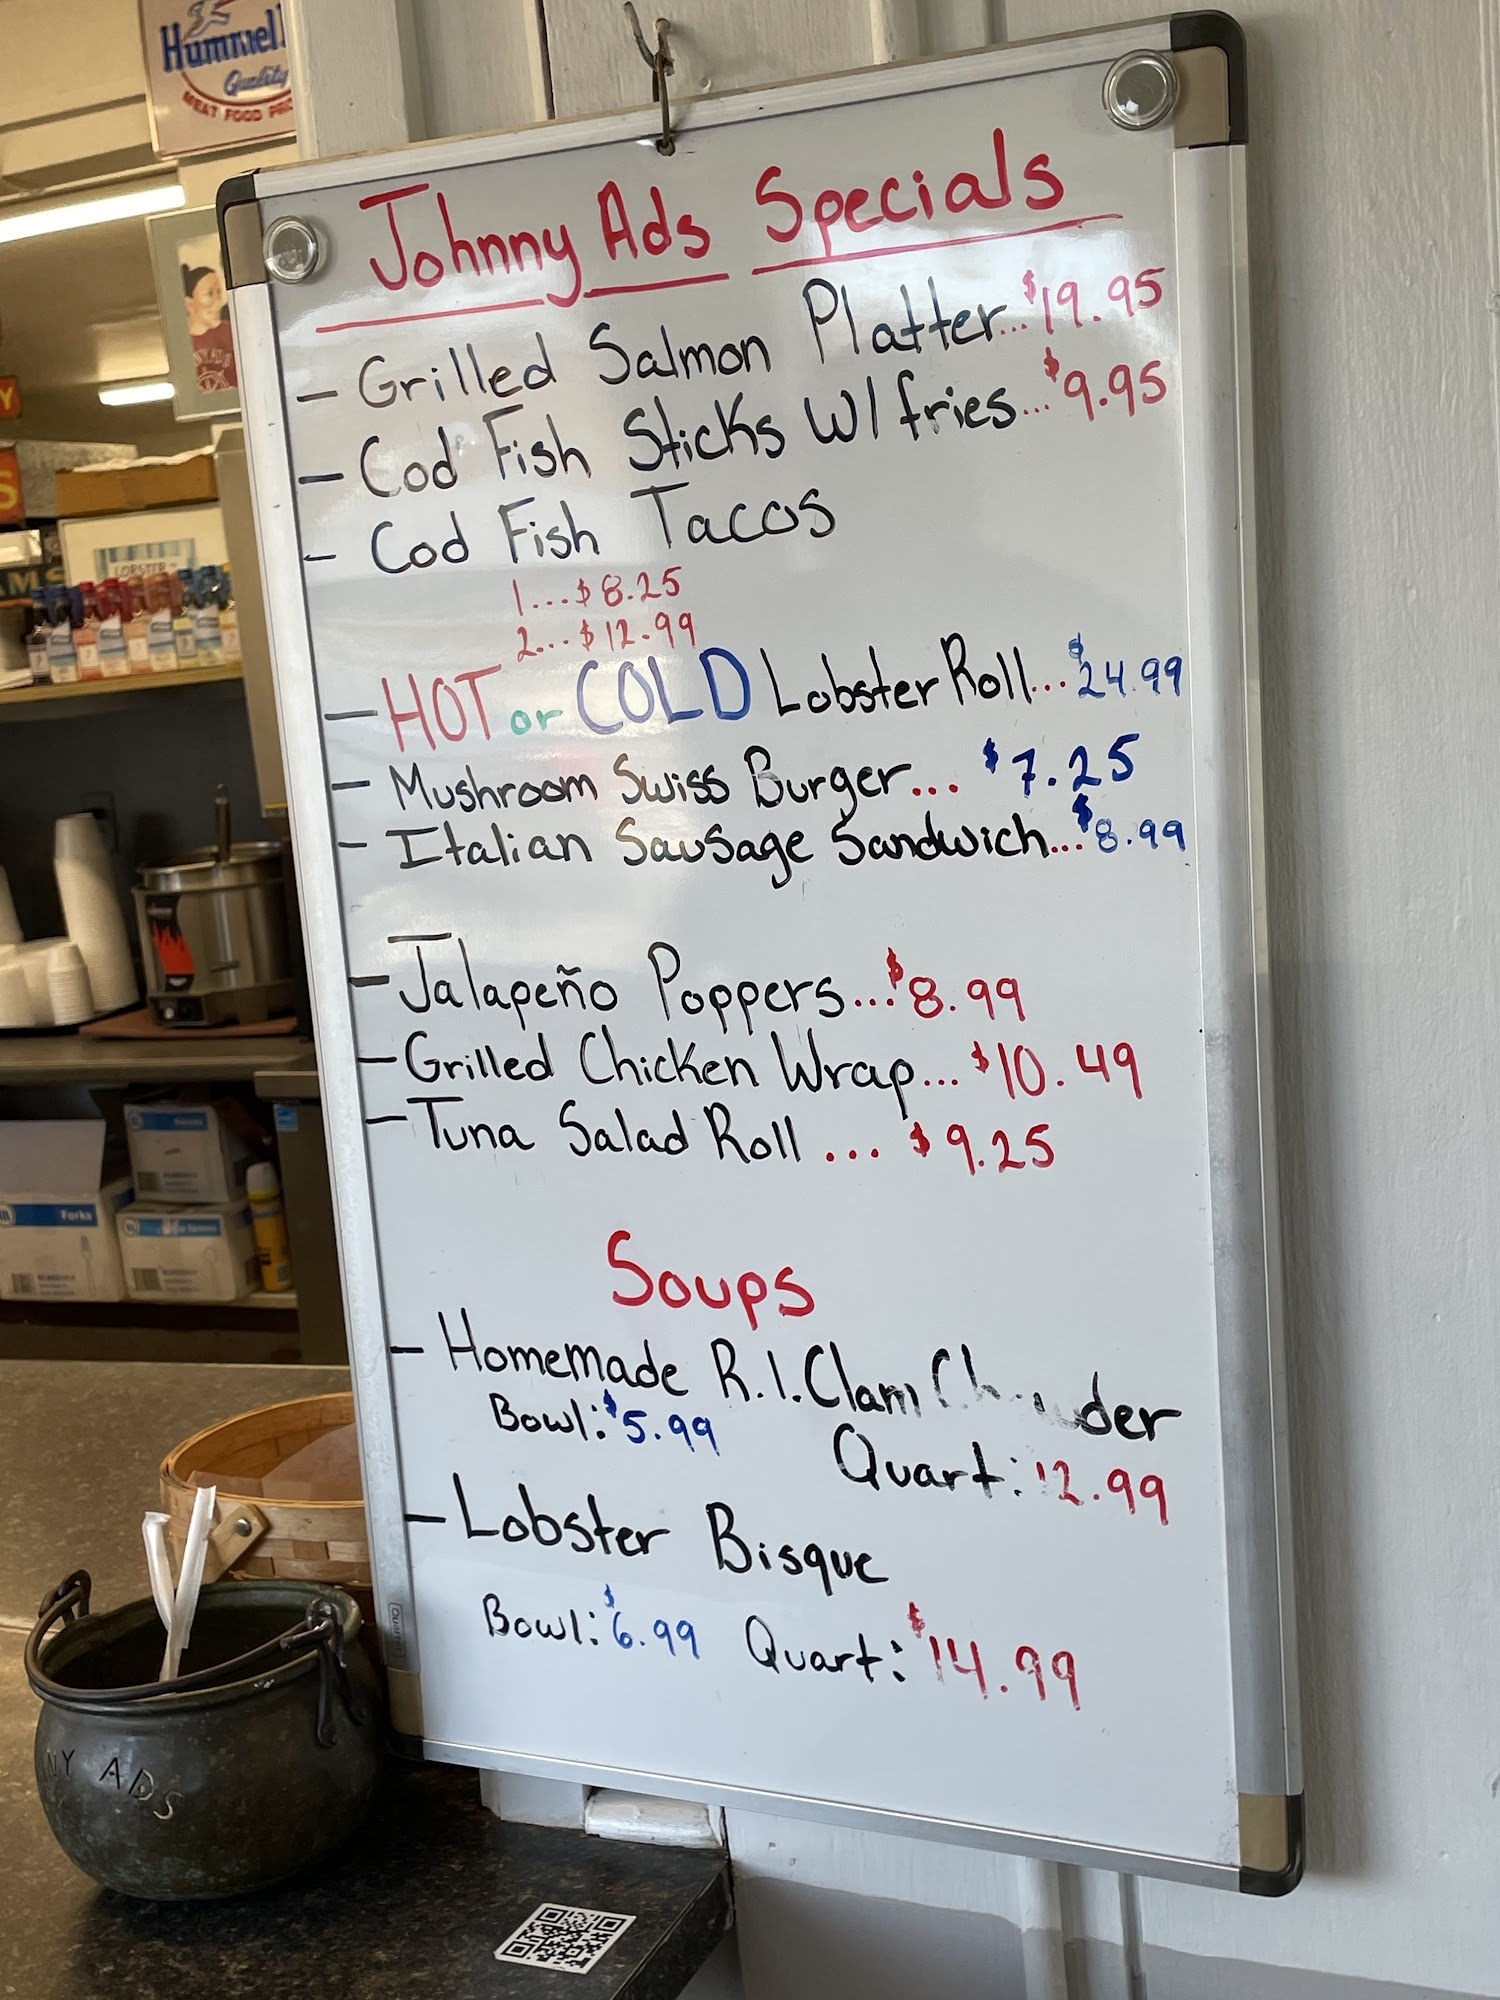 Hummel
Quality
MEAT FOOD
Johnny Ads Specials
- Grilled Salmon Platter...$19.95
- Cod Fish Sticks W/ fries...$9.95
- Cod Fish Tacos
1...$8.25
2...$12.99
- HOT or COLD Lobster Roll...$24.99
- Mushroom Swiss Burger...$7.25
- Italian Sausage Sandwich...$8.99
- Jalapeño Poppers...$8.99
- Grilled Chicken Wrap...$10.49
- Tuna Salad Roll...$9.25
Soups
- Homemade R.I. Clam Chowder
Bowl: $5.99
Quart: 12.99
- Lobster Bisque
Bowl: $6.99 Quart: $14.99
LOBSTER
Forks
Quartet
NY ADS